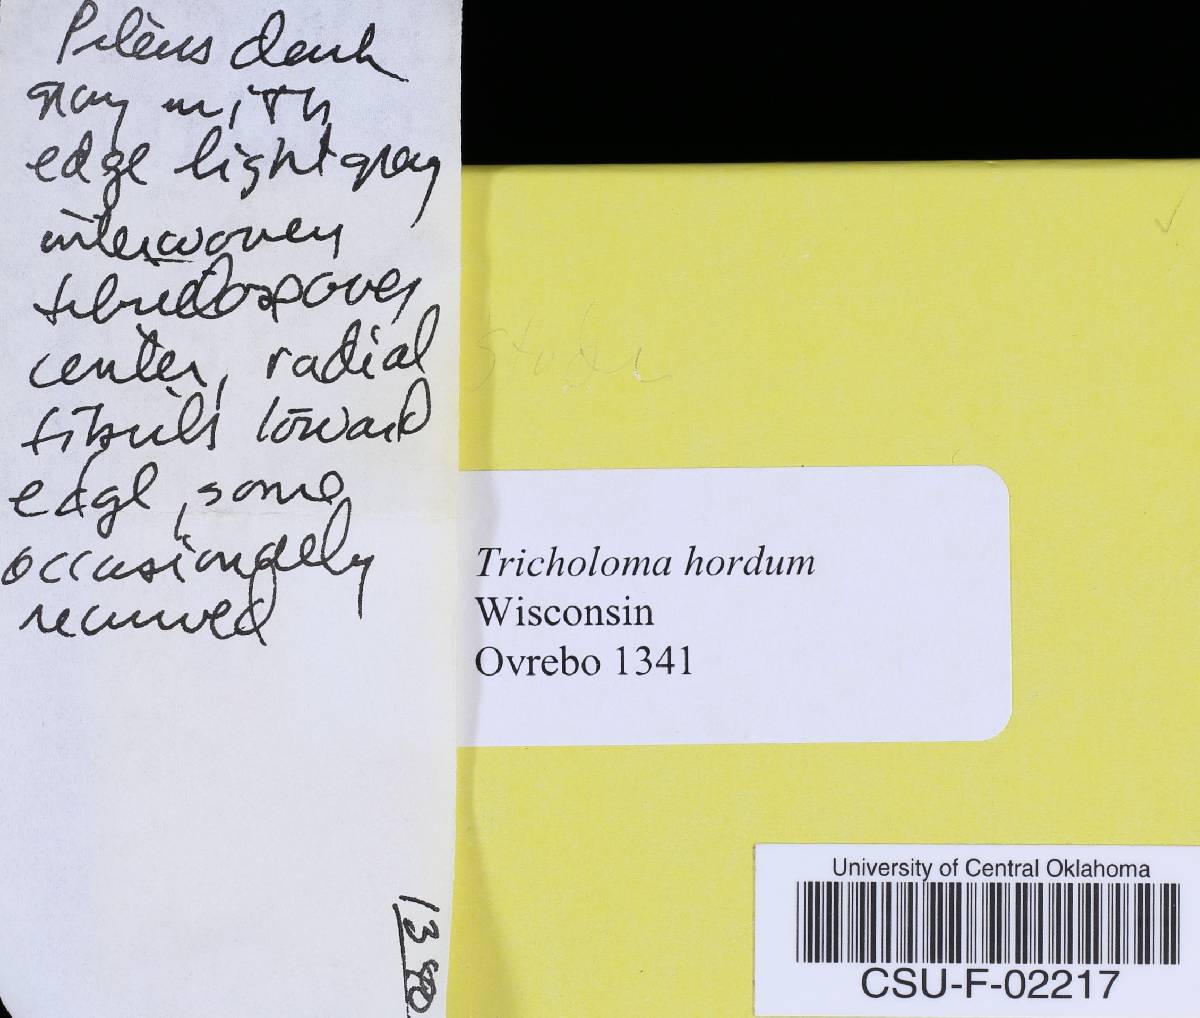 Pileus dark
gray with
edge light gray
interwoven
fibrils over
center, radial
fibrils toward
edge, some
occasionally
recurved
Tricholoma hordum
Wisconsin
Ovrebo 1341
University of Central Oklahoma
CSU-F-02217